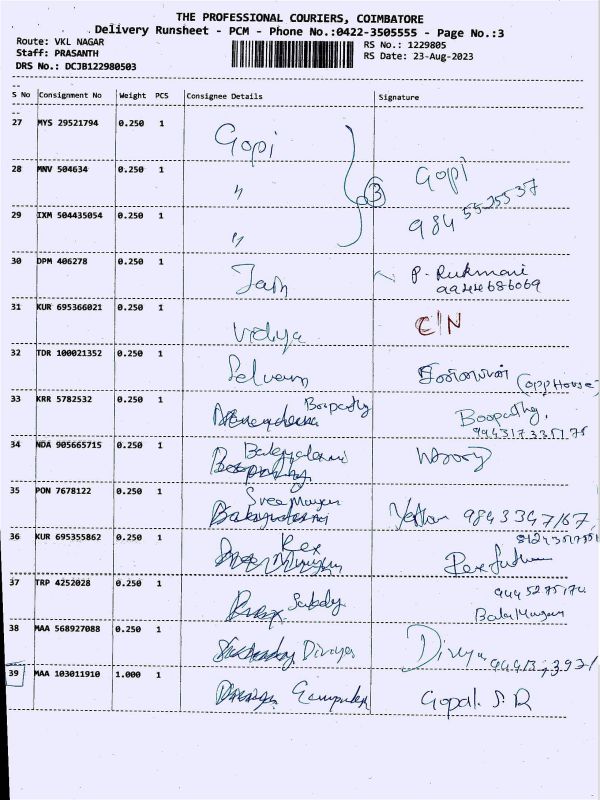 THE PROFESSIONAL COURIERS, COIMBATORE
Delivery Runsheet - PCM - Phone No.:0422-3505555 - Page No.:3
Route: VKL NAGAR
RS No.: 1229805
Staff: PRASANTH
RS Date: 23-Aug-2023
DRS No.: DCJB122980503
S No Consignment No Weight PCS Consignee Details Signature
27 MYS 29521794 0.250 1 Gopi
28 MNV 504634 0.250 1 〃 3 Gopi
29 IXM 504435054 0.250 1 〃 984 5525537
30 DPM 406278 0.250 1 Jain P. Rukmani
9944686069
31 KUR 695366021 0.250 1 Vidya C/N
32 TDR 100021352 0.250 1 Selvam (opp House)
33 KRR 5782532 0.250 1 Boopathy Boopathy.
34 NDA 905665715 0.250 1
35 PON 7678122 0.250 1 Sree Murugan 9843347167,
36 KUR 695355862 0.250 1 Rex
37 TRP 4252028 0.250 1
Bala Murugan
38 MAA 568927088 0.250 1 Divya Divya
39 MAA 103011910 1.000 1 Computer Gopal. S. R